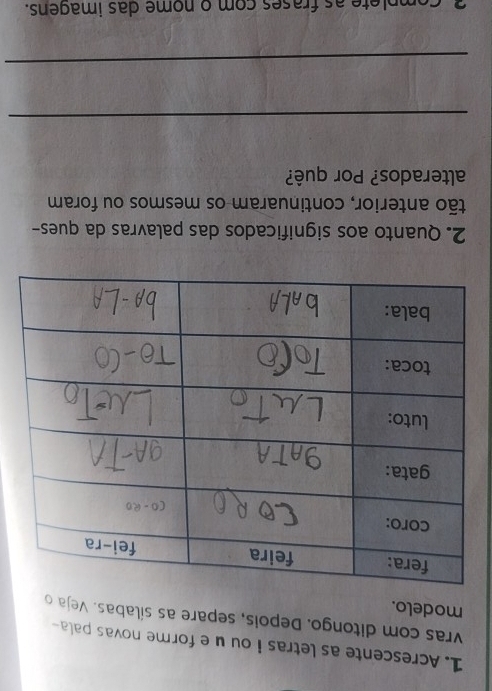 1. Acrescente as letras i ou u e forme novas pala-
vras com ditongo. Depois, separe as sílabas. Veja o
modelo.
fera: feira fei-ra
coro: CORO CO-RO
gata: gATA gA-TA
luto: LuTO Lu-TO
toca: TOCO TO-CO
bala: bALA bA-LA
2. Quanto aos significados das palavras da ques-
tão anterior, continuaram os mesmos ou foram
alterados? Por quê?
3. Complete as frases com o nome das imagens.